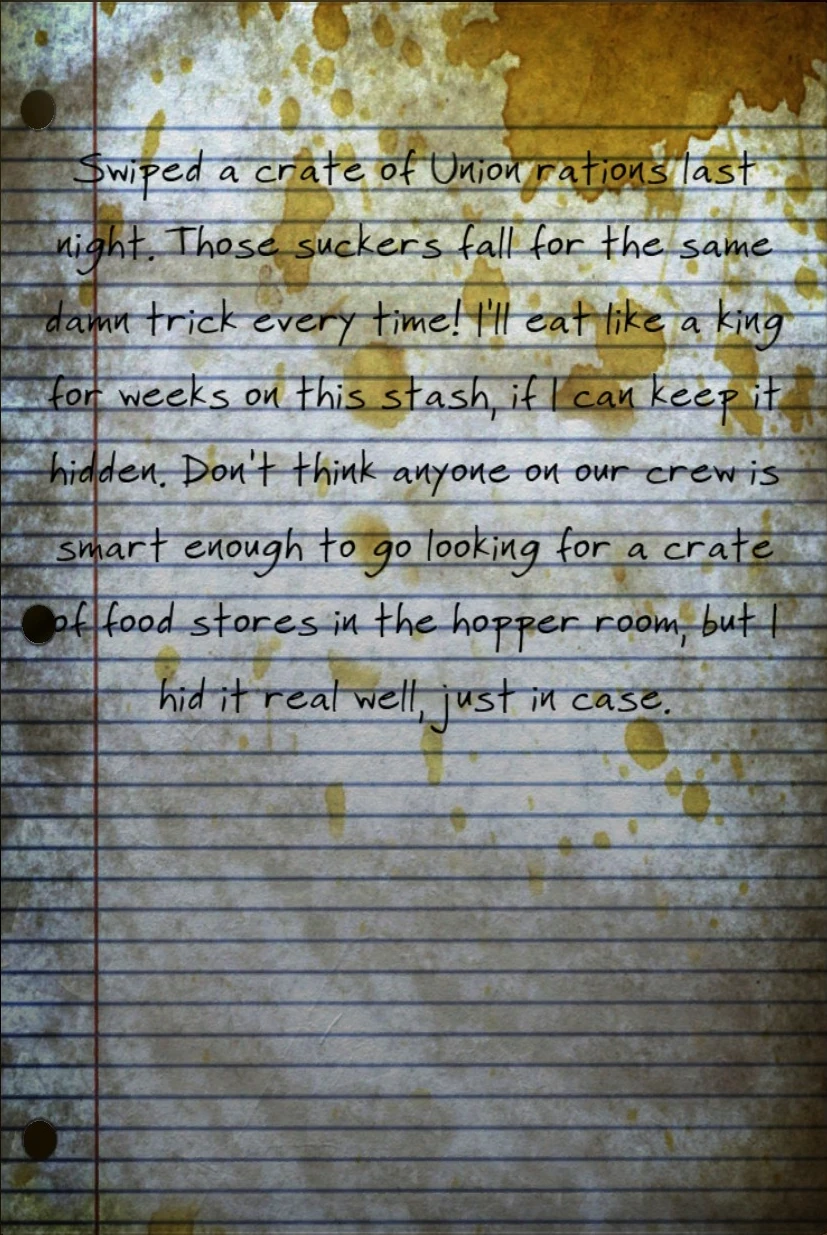 Swiped a crate of Union rations last
night. Those suckers fall for the same
damn trick every time! I'll eat like a king
for weeks on this stash, if I can keep it
hidden. Don't think anyone on our crew is
smart enough to go looking for a crate
of food stores in the hopper room, but I
hid it real well, just in case.